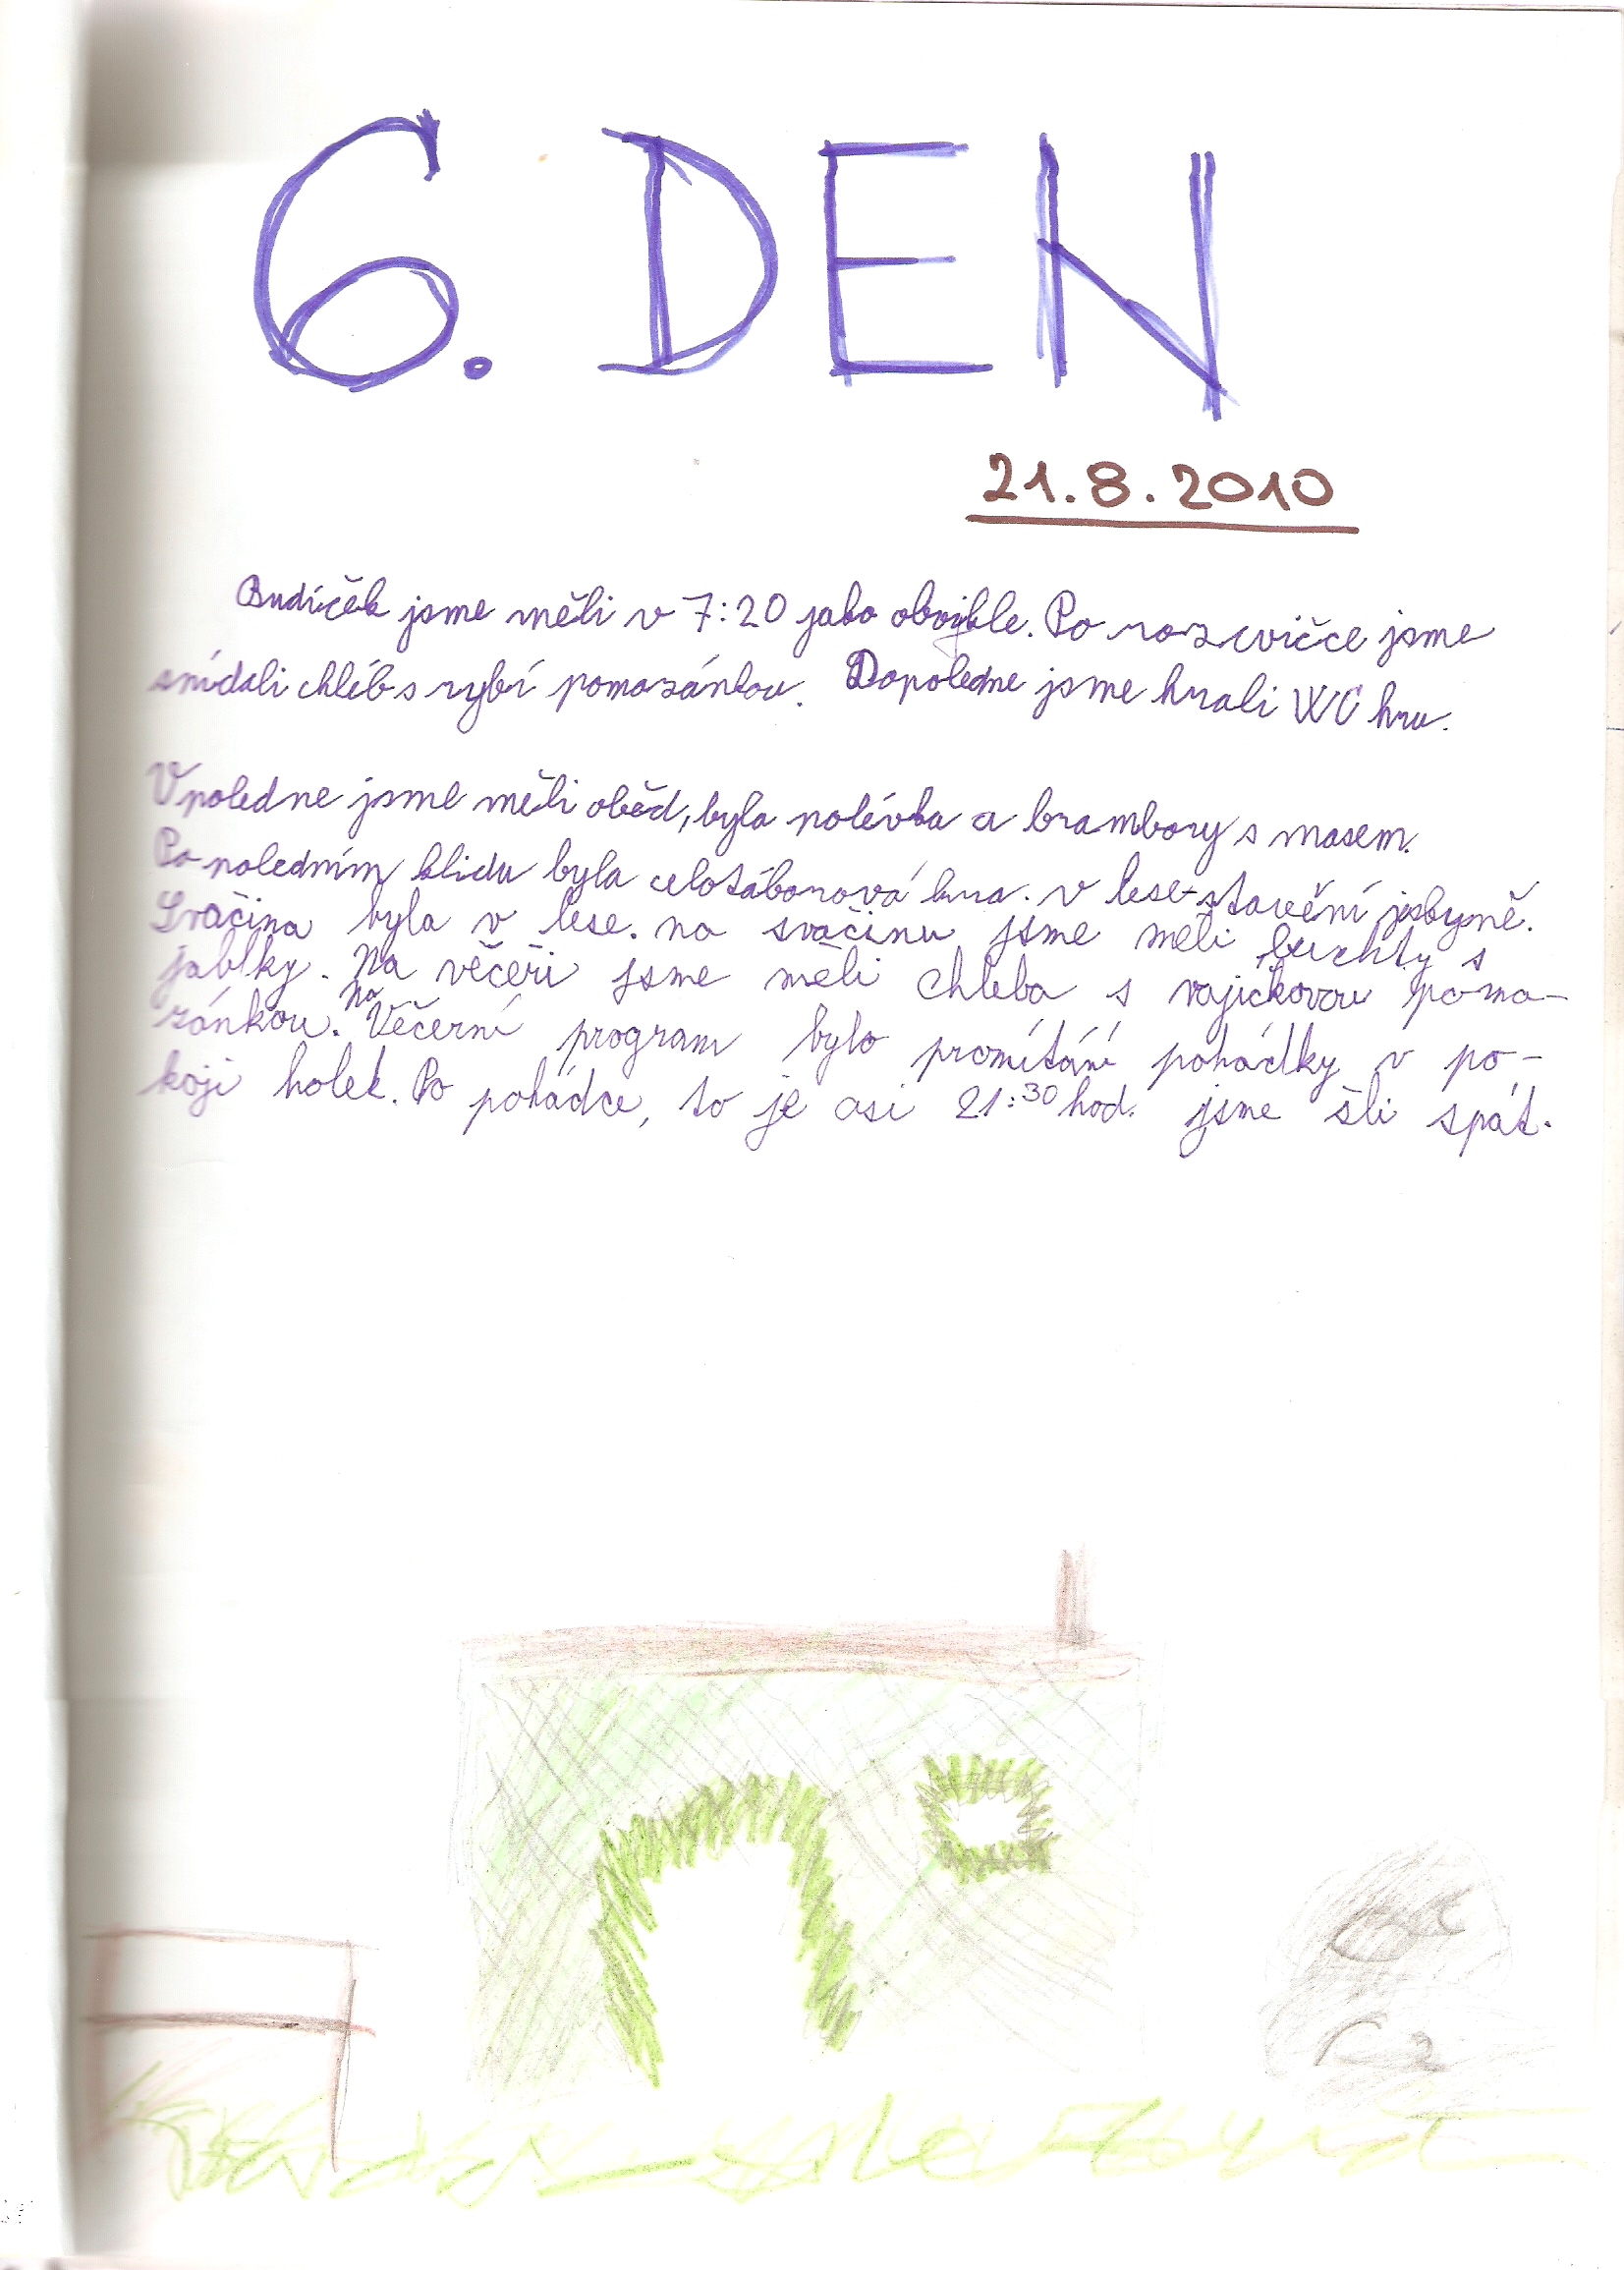 6. DEN
21.8.2010
Budíček jsme měli v 7:20 jako obvykle. Po rozcvičce jsme
snídali chléb s rybí pomazánkou. Dopoledne jsme hráli WC hru.
V poledne jsme měli oběd, byla polévka a brambory s masem.
Po poledním klidu byla celotáborová hra. v lese-stavění jeskyně.
Svačina byla v lese. na svačinu jsme měli buchty s
jablky. Na věčeři jsme měli chleba s vajíčkovou poma-
zánkou. Na Věčerní program bylo promítání pohádky v po-
koji holek. Po pohádce, to je asi 21:30 hod. jsme šli spát.